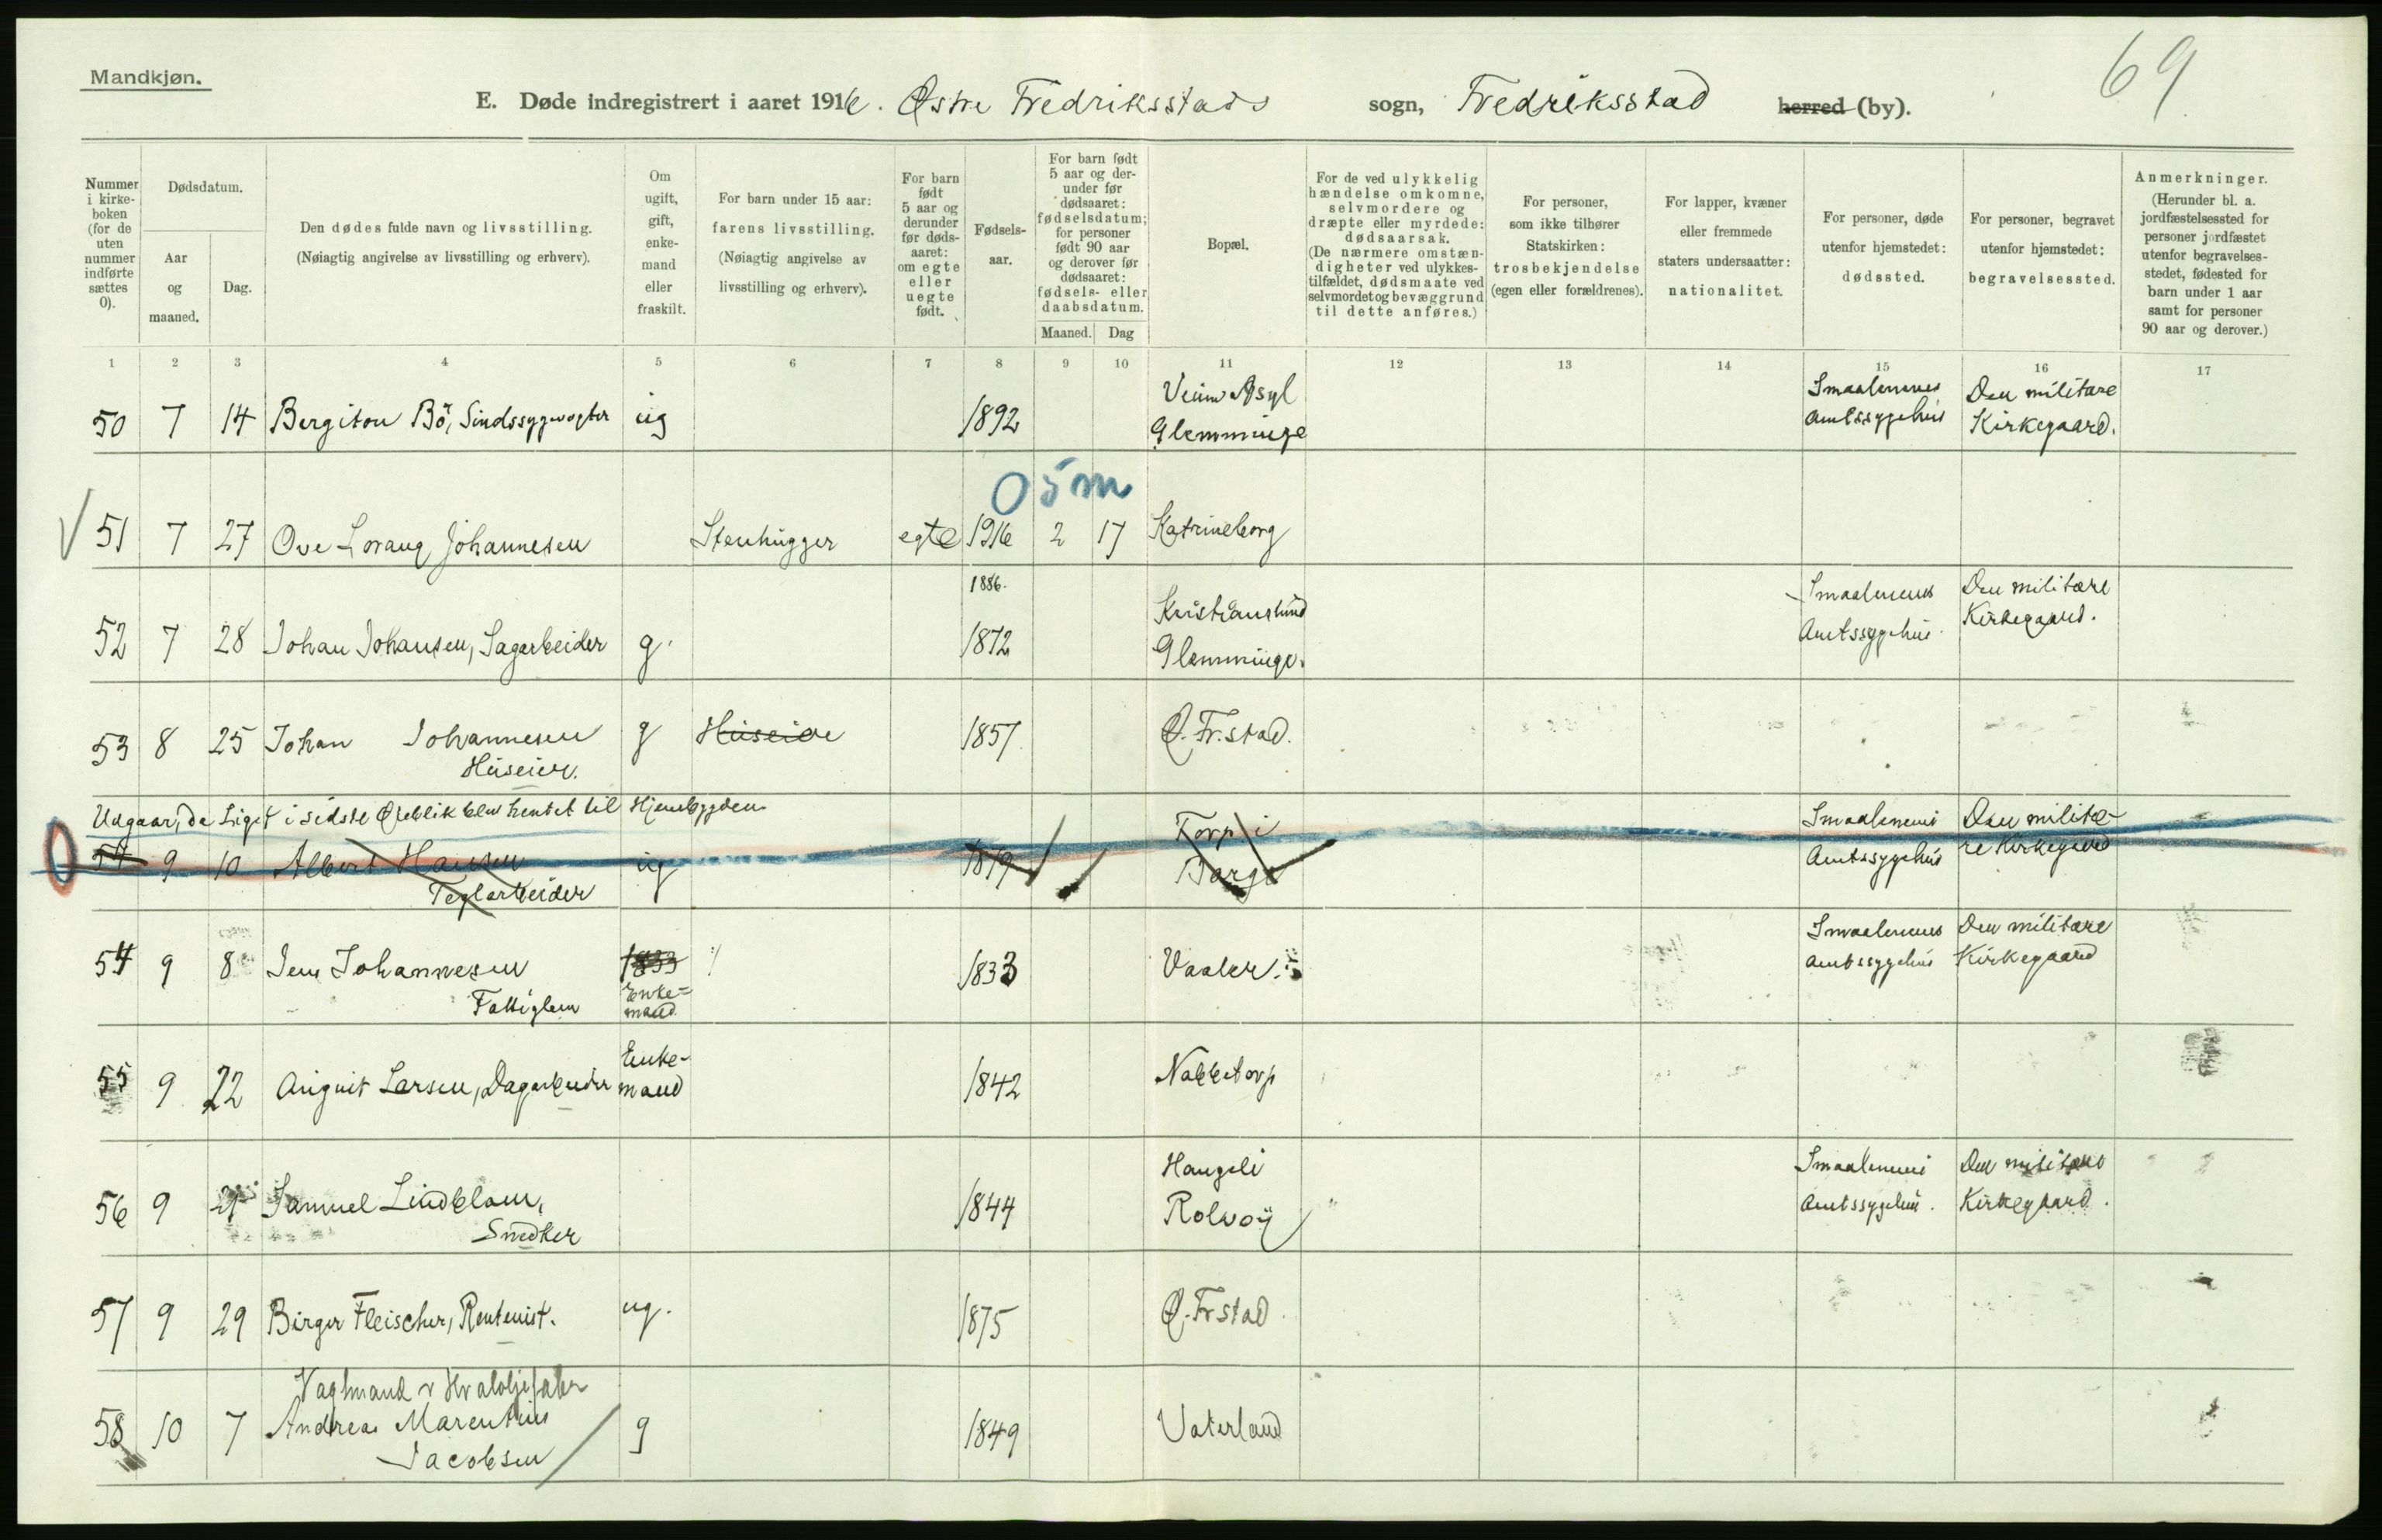 Mandkjøn.
69
E. Døde indregistrert i aaret 1916. Østre Fredriksstads sogn, Fredriksstad herred (by).
Nummer i kirkeboken (for de uten nummer indførte sættes 0).
Dødsdatum.
Aar og maaned.
Dag.
Den dødes fulde navn og livsstilling.
(Nøiagtig angivelse av livsstilling og erhverv).
Om ugift, gift, enkemand eller fraskilt.
For barn under 15 aar: farens livsstilling.
(Nøiagtig angivelse av livsstilling og erhverv).
For barn født 5 aar og derunder før dødsaaret: om egte eller uegte født.
Fødselsaar.
For barn født 5 aar og derunder før dødsaaret: fødselsdatum; for personer født 90 aar og derover før dødsaaret: fødsels- eller daabsdatum.
Maaned. Dag
Bopæl.
For de ved ulykkelig hændelse omkomne, selvmordere og dræpte eller myrdede: dødsaarsak.
(De nærmere omstændigheter ved ulykkestilfældet, dødsmaate ved selvmordet og bevæggrund til dette anføres.)
For personer, som ikke tilhører Statskirken: trosbekjendelse (egen eller forældrenes).
For lapper, kvæner eller fremmede staters undersaatter: nationalitet.
For personer, døde utenfor hjemstedet: dødssted.
For personer, begravet utenfor hjemstedet: begravelsessted.
Anmerkninger.
(Herunder bl. a. jordfæstelsessted for personer jordfæstet utenfor begravelsesstedet, fødested for barn under 1 aar samt for personer 90 aar og derover.)
1 2 3 4 5 6 7 8 9 10 11 12 13 14 15 16 17
50 7 14 Bergitou Bö, Sindssygevogter ug 1892 Veum Asyl Glemminge Smaalenenes Amtssygehus Den militære Kirkegaard.
0 5 m
51 7 27 Ove Lorang Johannesen Stenhugger egte 1916 2 17 Katrineborg
1886.
52 7 28 Johan Johansen, Sagarbeider g. 1872 Kristianslund Glemminge. Smaalenenes Amtssygehus. Den militære Kirkegaard.
53 8 25 Johan Johannesen Huseier. g Huseier 1857 Ø. Fr.stad.
Udgaar, da Liget i sidste Øieblik blev hentet til Hjembygden
54 9 10 Albert Hansen Teglarbeider ug 1879 Torp i Borge Smaalenenes Amtssygehus Den militære Kirkegaard
54 9 8 Jens Johannesen Fattiglem 1833 Enkemand 1833 Vaaler. Smaalenenes Amtssygehus Den militære Kirkegaard
55 9 22 August Larsen, Dagarbeider Enkemand 1842 Nabbetorp
56 9 Samuel Lindblom, Snedker 1844 Haugeli Rolvsöy Smaalenenes Amtssygehus. Den militære Kirkegaard.
57 9 29 Birger Fleischer, Rentenist. ug. 1875 Ø. Frstad.
Vagtmand v Hvaloljefabr
58 10 7 Andreas Marentius Jacobsen g 1849 Vaterland